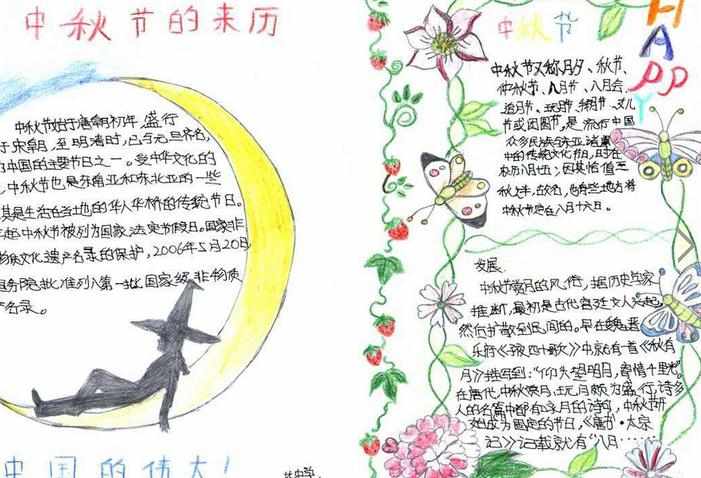 中秋节的来历
中秋节始于唐朝初年,盛行
于宋朝,至明清时,已与元旦齐名,
中国的主要节日之一。受中华文化的
,中秋节也是东南亚和东北亚的一些
其是生活在各地的华人华侨的传统节日。
年起中秋节被列为国家法定节假日。国家非
物质文化遗产名录的保护,2006年5月20日
国务院批准列入第一批国家级非物质
产名录。
中国的伟大!
中秋节
HAPPY
中秋节又称月夕、秋节、
仲秋节、八月节、八月会、
追月节、玩月节、拜月节、女儿
节或团圆节,是流行中国
众多民族与东亚诸国
中的传统文化节日,时在
农历八月十五;因其恰值三
秋之半,故名,也有些地方将
中秋节定在八月十六日。
发展:
中秋节赏月的风俗,据历史学家
推断,最初是古代宫廷文人兴起,
然后扩散至民间的。早在魏晋
乐府《子夜四十歌》中就有首《秋有
月》描写到:“仰头望明月,寄情千里光”。
在唐代,中秋赏月、玩月颇为盛行,许多
人的名篇中都有咏月的诗句,中秋节
始成为固定的节日,《唐书·太宗
记》记载就有“八月……